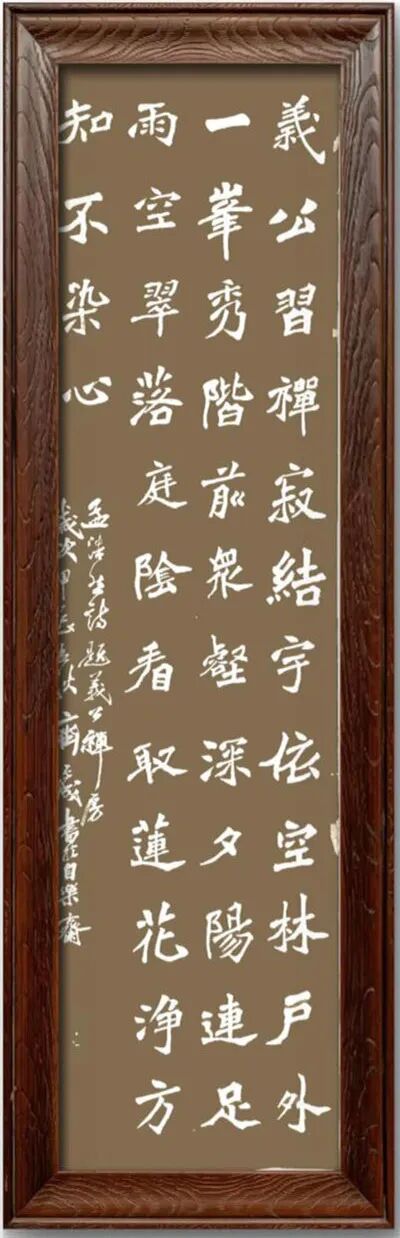 義公習禪寂結宇依空林戶外
一峯秀階前眾壑深夕陽連足
雨空翠落庭陰看取蓮花浄方
知不染心
孟浩然詩題義公禪房
歲次甲辰秋書於自樂齋